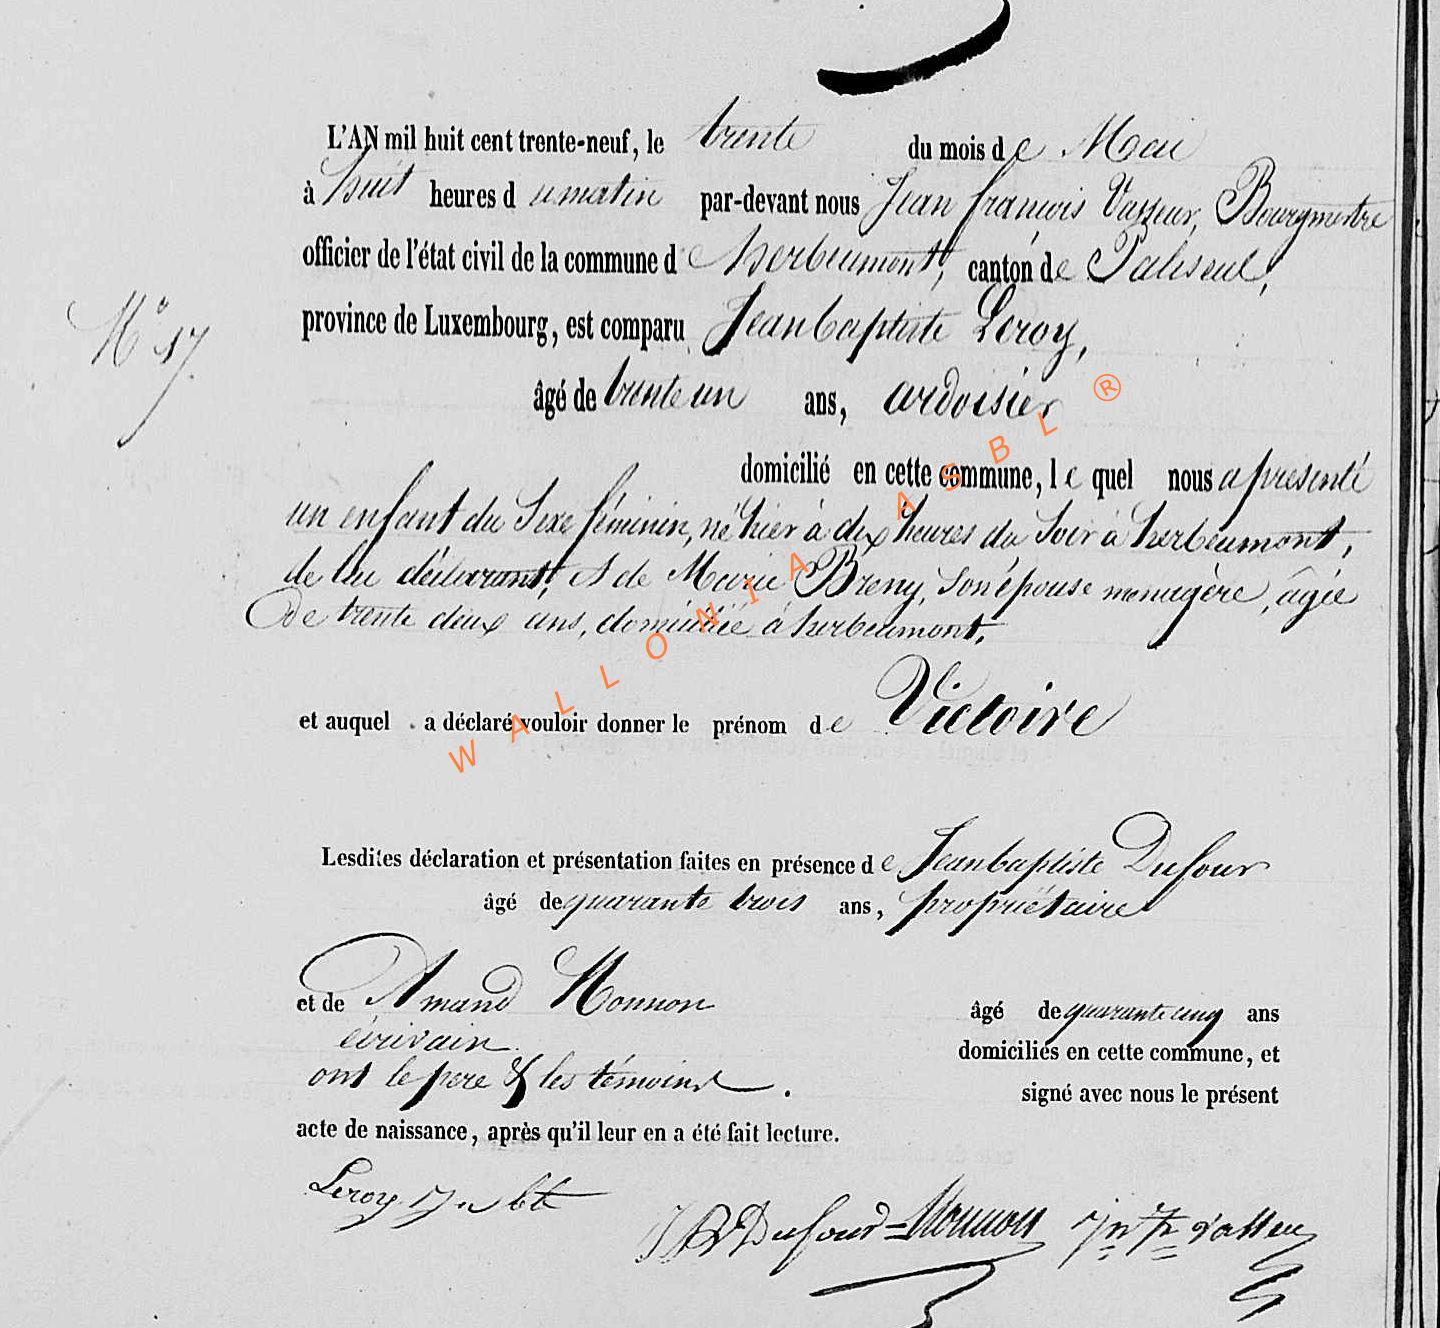 L'AN mil huit cent trente-neuf, le trente du mois de Mai
à huit heures du matin par-devant nous Jean françois Vasseur, Bourgmestre
officier de l'état civil de la commune de herbeumont, canton de Paliseul,
N° 17.
province de Luxembourg, est comparu Jeanbaptiste Leroy,
âgé de trente un ans, ardoisier
domicilié en cette commune, lequel nous a présenté
un enfant du Sexe féminin, né hier à dix heures du Soir à herbeumont,
de lui déclarant, & de Marie Breny, Son épouse menagère, âgée
De trente deux ans, domiciliée à herbeumont,
et auquel a déclaré vouloir donner le prénom de Victoire
Lesdites déclaration et présentation faites en présence de Jeanbaptiste Dufour
âgé de quarante trois ans, propriétaire
et de Amand Monnon âgé de quarante cinq ans
écrivain domiciliés en cette commune, et
ont le pere & les témoins signé avec nous le présent
acte de naissance, après qu'il leur en a été fait lecture.
Leroy Jn bte JB Dufour Monnon Jn Fs Vasseur
WALLONIA ASBL ®